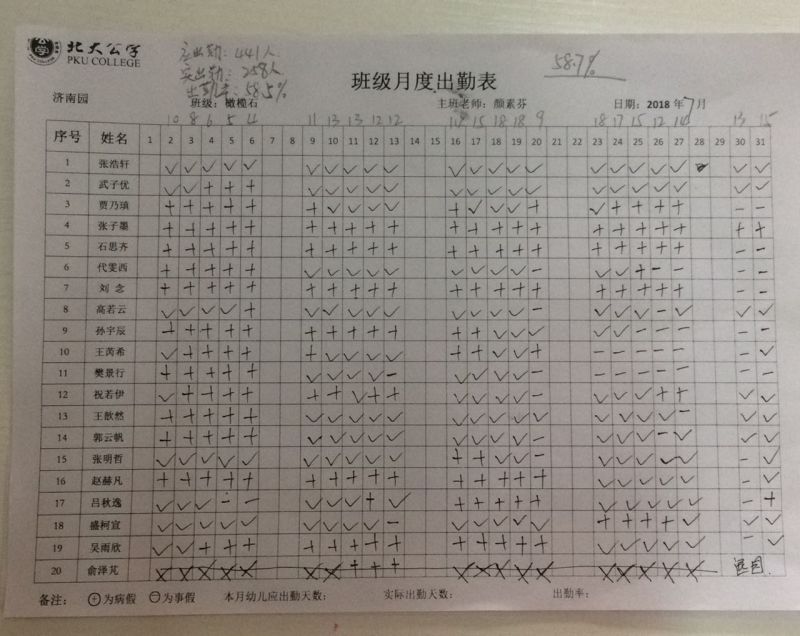 北大公学
PKU COLLEGE
应出勤：441人
实出勤：258人
出勤率：58.5%
58.7%
班级月度出勤表
济南园 班级：橄榄石 主班老师：颜素芬 日期：2018 年7月
10 8 6 5 4 11 13 13 12 12 15 18 18 9 18 17 15 12 14 13 15
序号 姓名 1 2 3 4 5 6 7 8 9 10 11 12 13 14 15 16 17 18 19 20 21 22 23 24 25 26 27 28 29 30 31
1 张浩轩 ✓ ✓ ✓ ✓ ✓ ✓ ✓ ✓ ✓ ✓ ✓ ✓ ✓ ✓ ✓ ✓ ✓ ✓ ✓ ✓ ✓ ✓
2 武子优 ✓ ✓ + + + ✓ ✓ ✓ ✓ ✓ ✓ ✓ ✓ ✓ ✓ ✓ ✓ ✓ ✓ ✓ ✓ ✓
3 贾乃瑱 + + + + + + ✓ ✓ ✓ ✓ + ✓ ✓ ✓ + ✓ + + + + - -
4 张子墨 + + + + + + + + + + + + + + + + + + + + + +
5 石思齐 + + + + + + + + + + + + + + + + + + + + - -
6 代雯西 + + + + + ✓ ✓ ✓ ✓ ✓ ✓ ✓ ✓ ✓ - ✓ ✓ + - - - -
7 刘 念 + + + + + + + + + + + + + + + + + + + + - -
8 高若云 ✓ ✓ ✓ ✓ + ✓ ✓ ✓ ✓ ✓ ✓ ✓ ✓ ✓ - ✓ ✓ ✓ - ✓ ✓ ✓
9 孙宇辰 + + + + + + + + + + + + ✓ ✓ ✓ ✓ ✓ - - - - -
10 王芮希 ✓ + + + + + ✓ ✓ ✓ ✓ + + ✓ ✓ + - - - - - - ✓
11 樊景行 + + + + + ✓ ✓ ✓ ✓ - ✓ ✓ ✓ ✓ - - - - - - - -
12 祝若伊 ✓ + + + + + + ✓ + + ✓ ✓ ✓ ✓ - ✓ ✓ ✓ + + ✓ ✓
13 王歆然 + + + + + ✓ ✓ ✓ ✓ ✓ ✓ ✓ ✓ ✓ ✓ ✓ ✓ ✓ ✓ - ✓ ✓
14 郭云帆 + + + + + ✓ ✓ ✓ ✓ ✓ ✓ ✓ ✓ ✓ - ✓ ✓ ✓ - ✓ ✓ ✓
15 张明哲 ✓ ✓ ✓ ✓ ✓ ✓ ✓ ✓ ✓ ✓ + + ✓ ✓ - ✓ ✓ ✓ ✓ ✓ - ✓
16 赵赫凡 + + + + + + + + + + + + + + + ✓ ✓ ✓ ✓ ✓ - ✓
17 吕秋逸 ✓ ✓ ✓ - - ✓ ✓ ✓ + ✓ + + + + + ✓ ✓ ✓ ✓ ✓ - +
18 盛柯宣 ✓ ✓ ✓ ✓ ✓ ✓ ✓ ✓ ✓ - ✓ ✓ ✓ ✓ ✓ + + + + ✓ ✓ ✓
19 吴雨欣 ✓ ✓ + + + + + + + + + + + + + ✓ ✓ ✓ ✓ ✓ - ✓
20 俞泽芃 X X X X X X X + + + X X X X X X X X X X 退园.
备注： ⊕为病假 ⊖为事假 本月幼儿应出勤天数： 实际出勤天数： 出勤率：